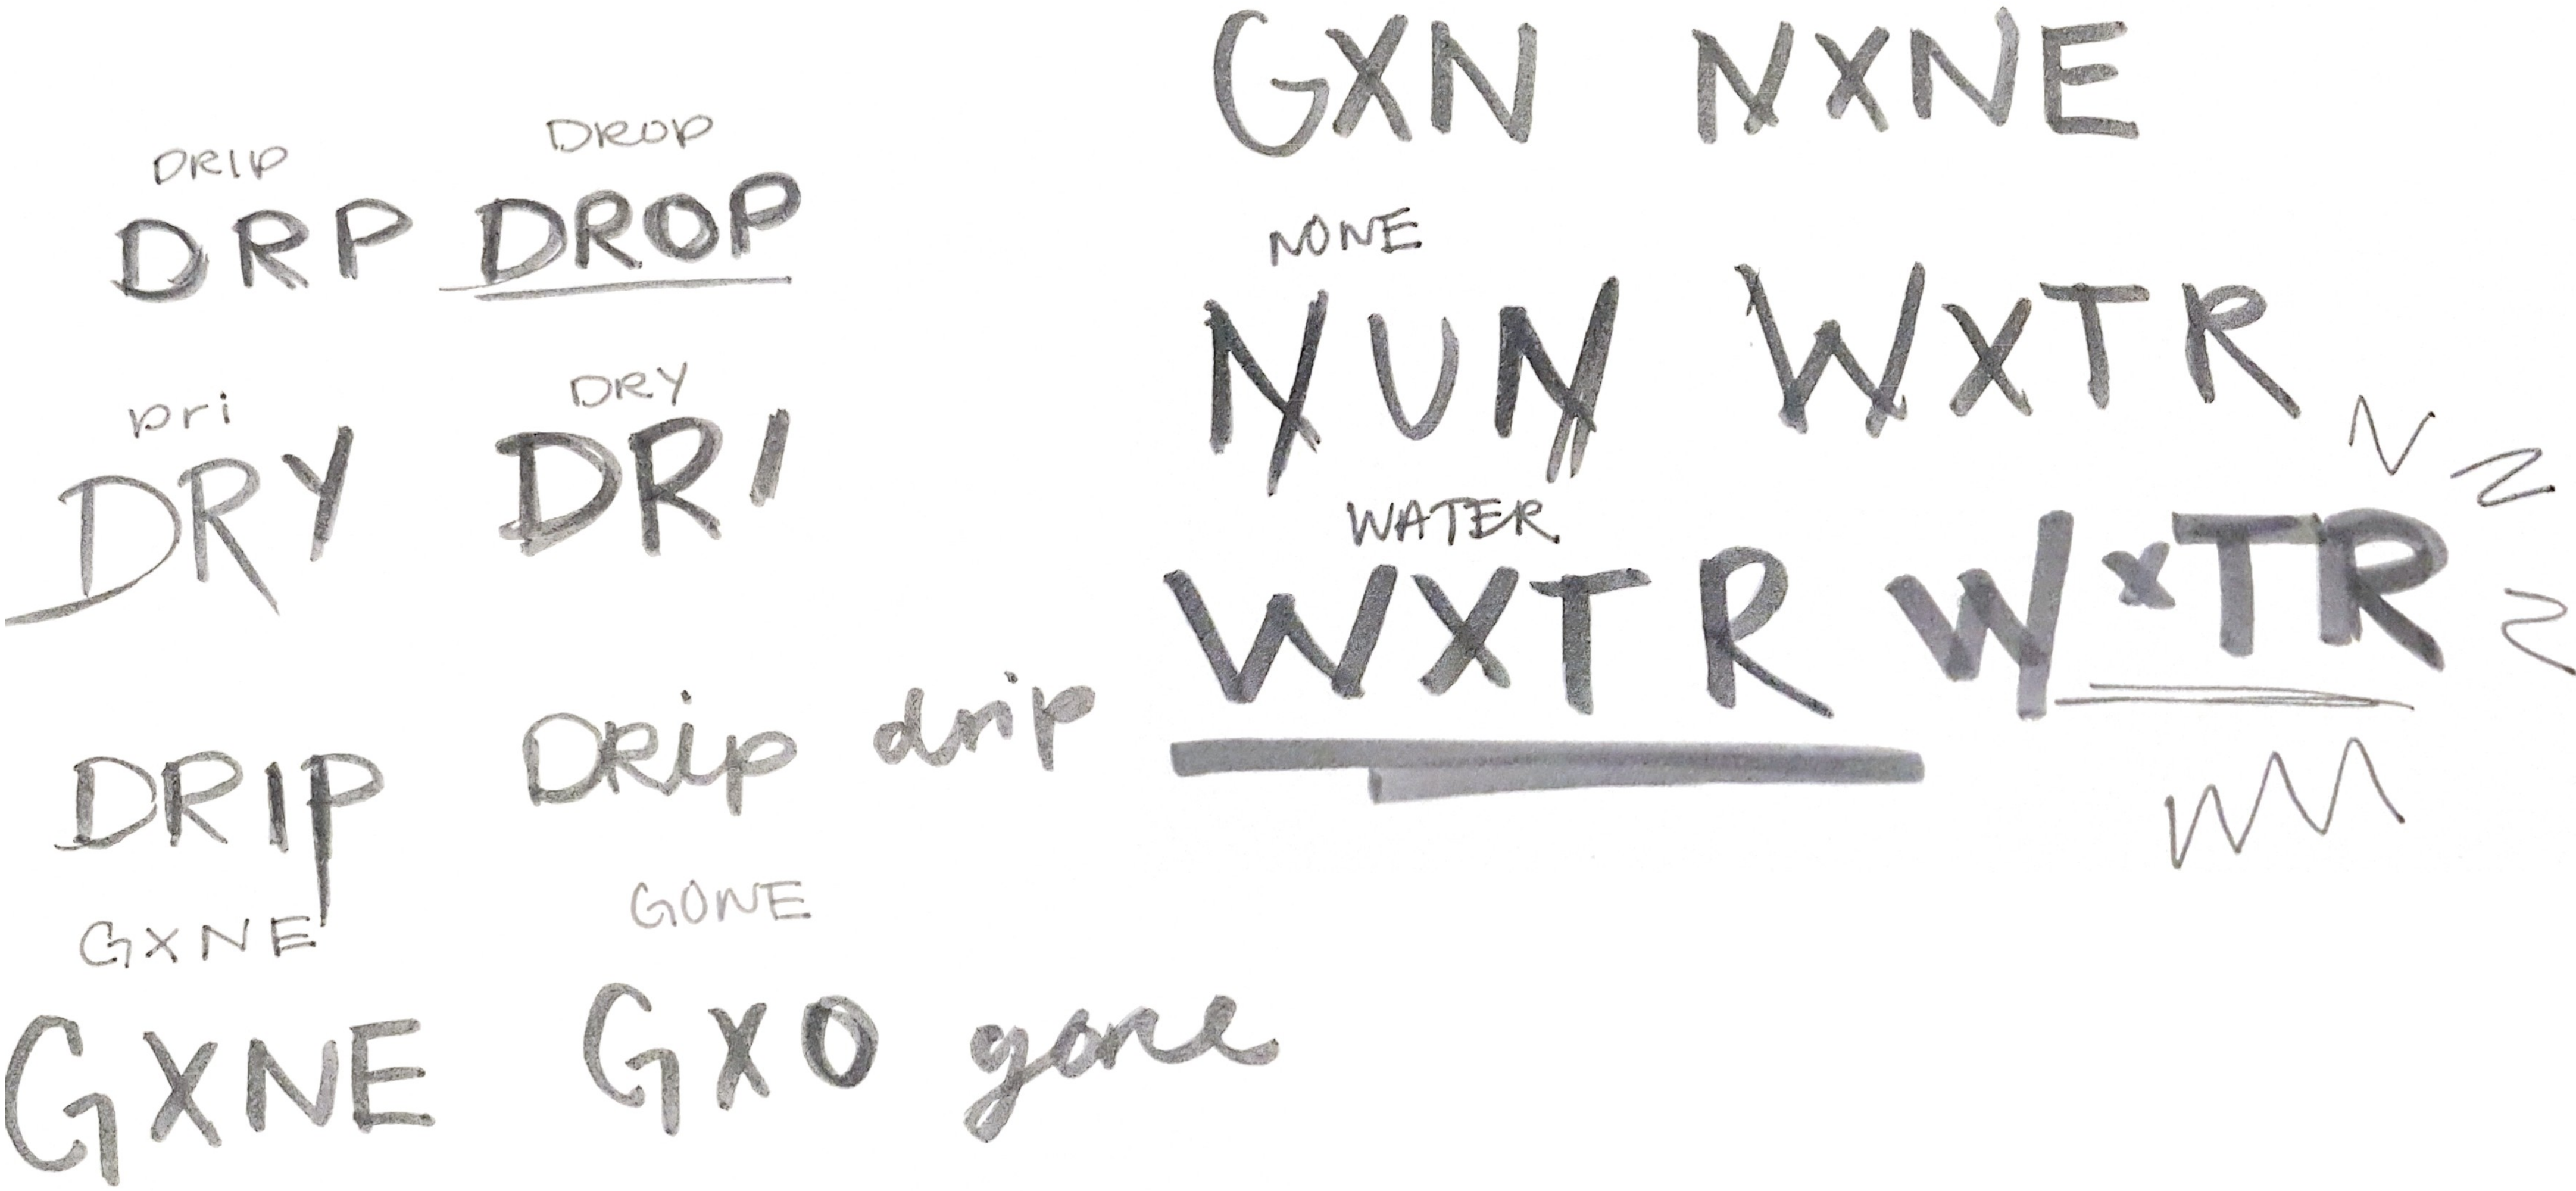 DRIP DROP
DRP DROP
Dri DRY
DRY DRI
DRIP DRip drip
GXNE GONE
GXNE GXO gone
GXN NXNE
NONE
NUN WXTR
WATER
WXTR WXTR